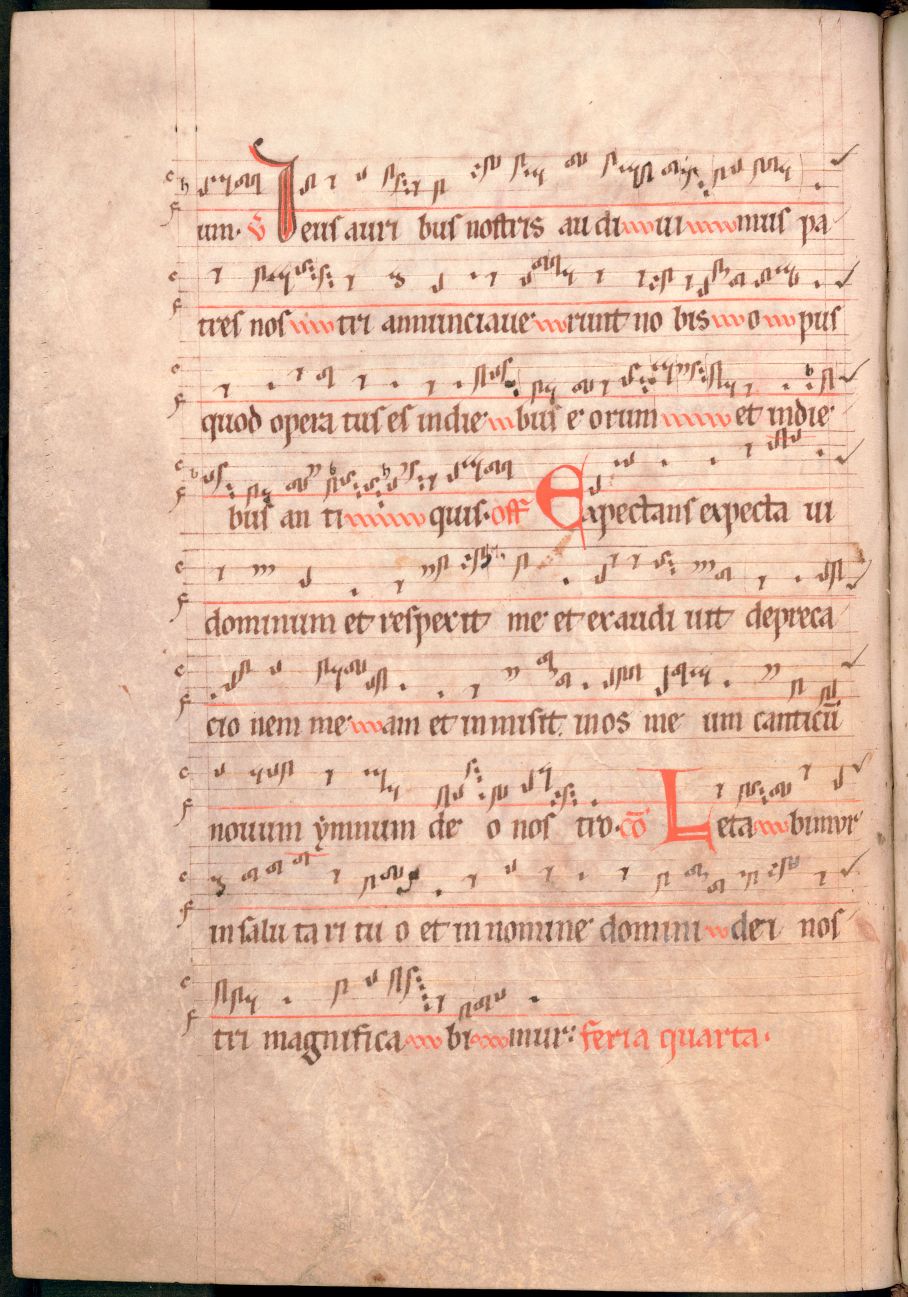 um. v̄ Ieus auri bus nostris au di ui mus pa
tres nos tri annunciaue runt no bis o pus
quod opera tus es indie bus e orum et indie
bus an ti quis. off Expectans expecta ui
dominum et respexit me et exaudi uit depreca
cio nem me am et inmisit inos me um canticū
nouum ẏmnum de o nos tro. cō Leta bimur
in salu ta ri tu o et in nomine domini dei nos
tri magnifica bi mur: feria quarta.